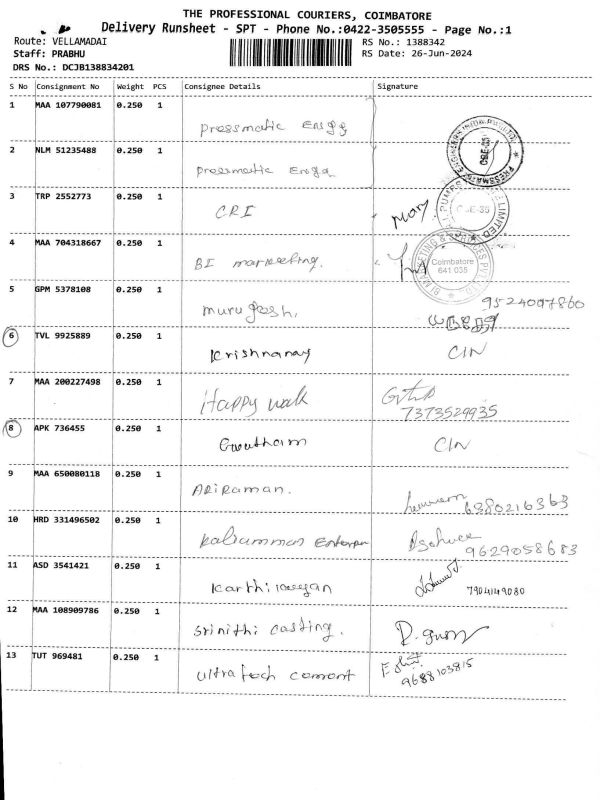 THE PROFESSIONAL COURIERS, COIMBATORE
Delivery Runsheet - SPT - Phone No.:0422-3505555 - Page No.:1
Route: VELLAMADAI RS No.: 1388342
Staff: PRABHU RS Date: 26-Jun-2024
DRS No.: DCJB138834201
S No Consignment No Weight PCS Consignee Details Signature
1 MAA 107790081 0.250 1
Pressmatic Engg
2 NLM 51235488 0.250 1
Pressmatic Engg
3 TRP 2552773 0.250 1
CRI Mary
4 MAA 704318667 0.250 1
BI marketing. Coimbatore 641 035
5 GPM 5378108 0.250 1
murugesh, 9524007860
6 TVL 9925889 0.250 1
Krishnaraj CIN
7 MAA 200227498 0.250 1
Happy walk
7373529935
8 APK 736455 0.250 1
Gwutham CIN
9 MAA 650080118 0.250 1
Ariraman. 6380216363
10 HRD 331496502 0.250 1
9629058683
11 ASD 3541421 0.250 1
7904149080
12 MAA 108909786 0.250 1
Srinithi casting.
13 TUT 969481 0.250 1
ultra tech cement 9688103815